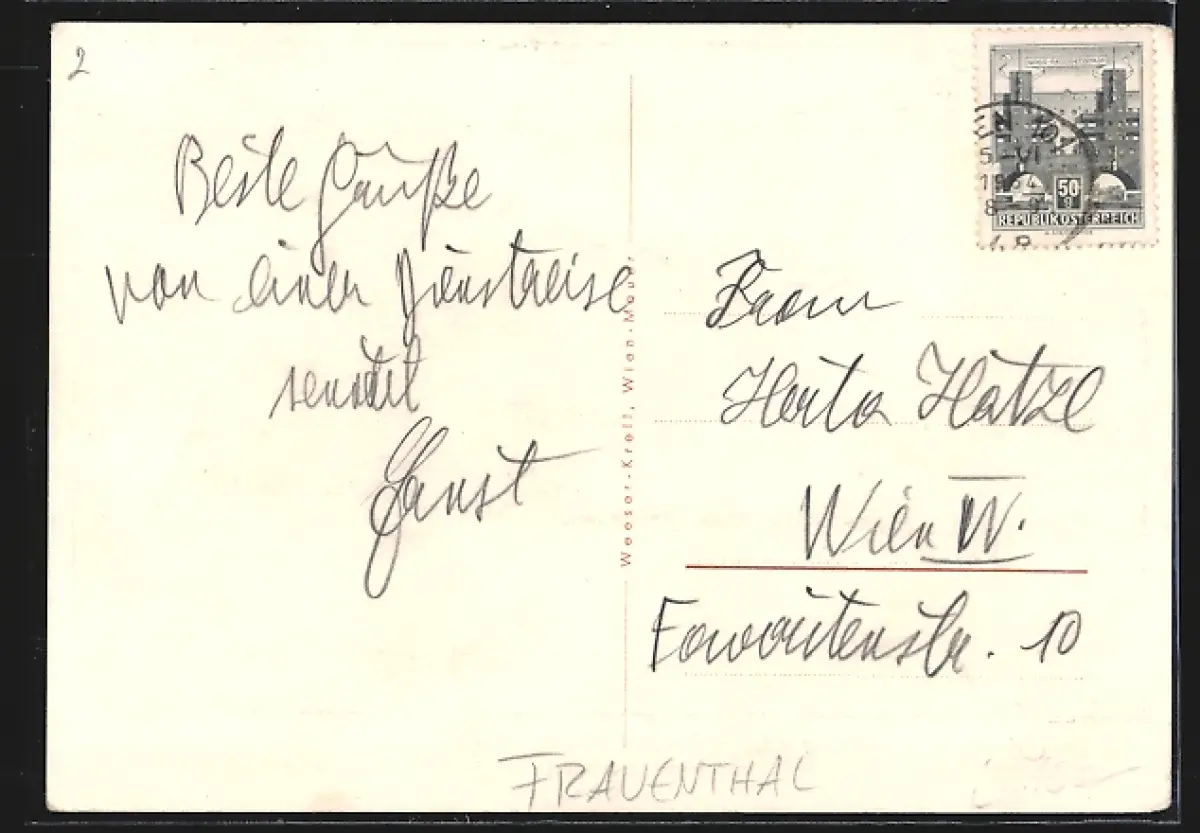 2
Beste Grüße
von einer Dienstreise
sendet
Ernst
Weeser-Krell, Wien-Mauer
REPUBLIK ÖSTERREICH
50 g
Frau
Herta Hatzl
Wien IV.
Favoritenstr. 10
FRAUENTHAL